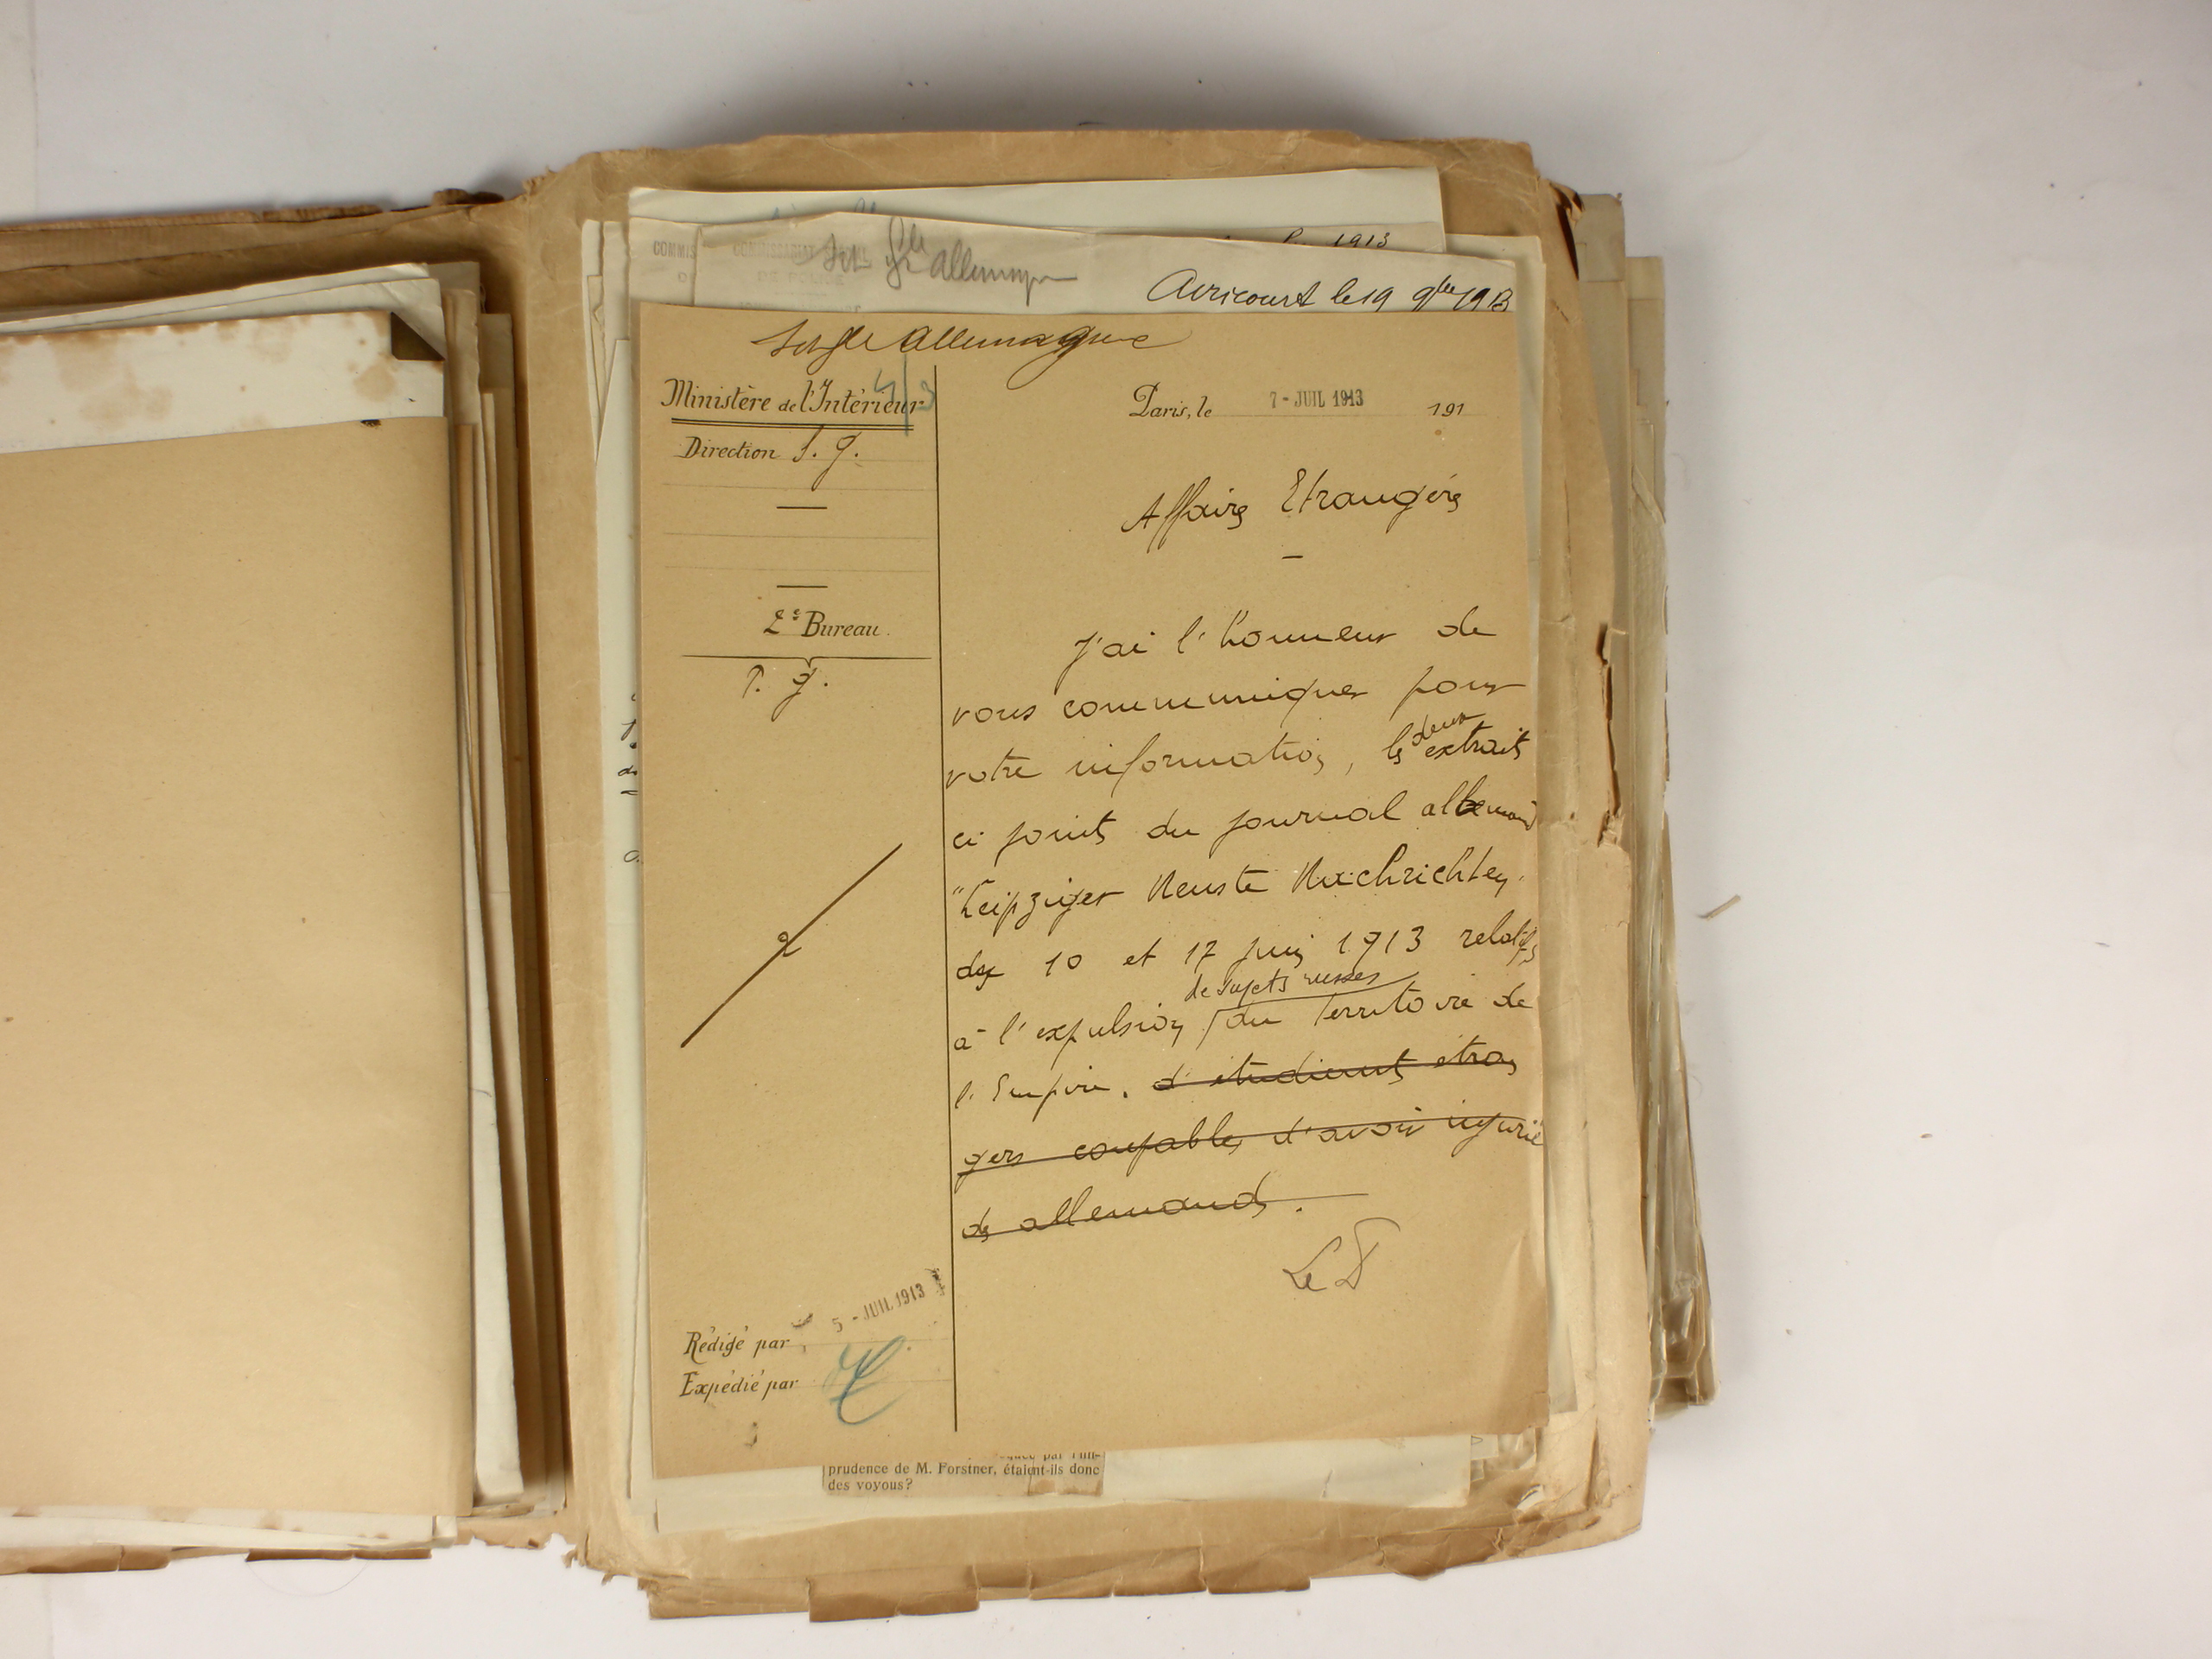 1913
COMMIS
COMMISSARIAT
DE POLICE
allemagne
Avricourt le 19 9bre 1913
allemagne
4/3
Ministère de l'Intérieur
Paris, le 7 - JUIL 1913 191
Direction S. g.
Affaires Etrangères
2e Bureau.
P. g.
J'ai l'honneur de
vous communiquer pour
votre information, les deux extraits
ci joints du journal allemand
"Leipziger Neuste Nachrichten"
des 10 et 17 juin 1913 relatifs
à l'expulsion de sujets russes du territoire de
l'Empire. d'étudiants étran
gers coupables d'avoir injurié
des allemands.
Le D
Rédigé par 5 - JUIL 1913
Expédié par
prudence de M. Forstner, étaient-ils donc
des voyous?